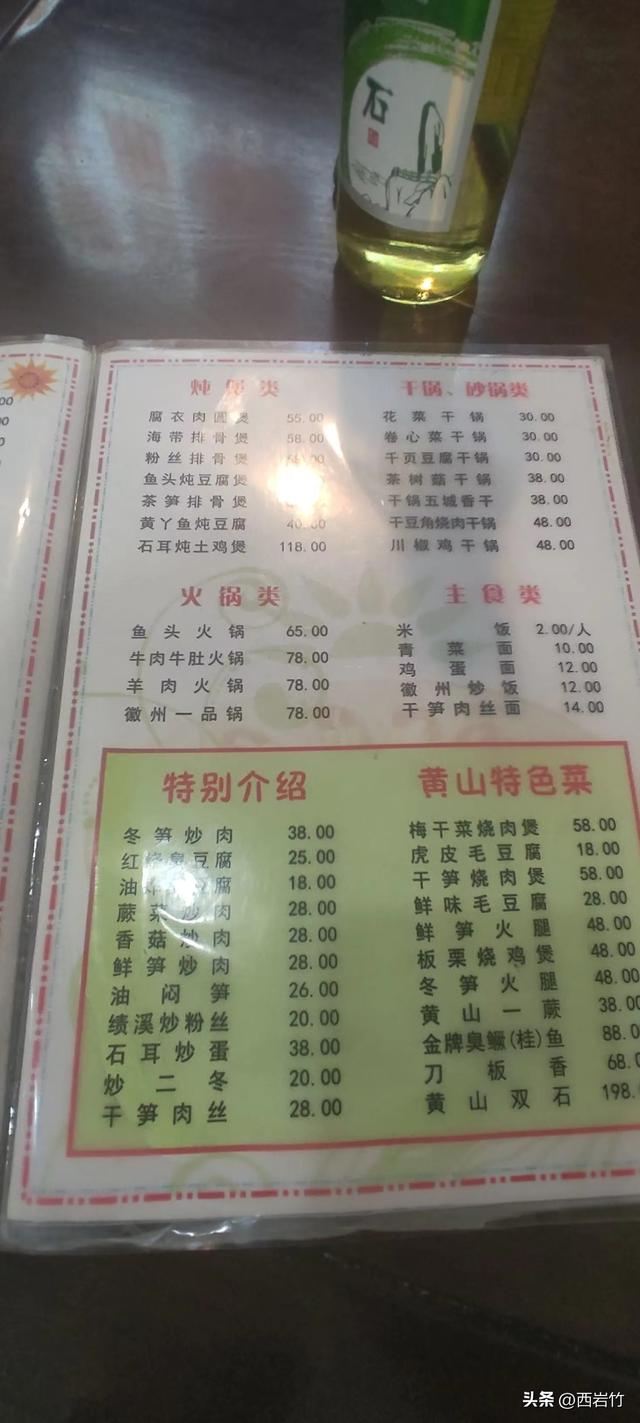 石
炖煲类
腐衣肉圆煲 55.00
海带排骨煲 58.00
粉丝排骨煲
鱼头炖豆腐煲
茶笋排骨煲
黄丫鱼炖豆腐 40.00
石耳炖土鸡煲 118.00
干锅、砂锅类
花菜干锅 30.00
卷心菜干锅 30.00
千页豆腐干锅 30.00
茶树菇干锅 38.00
干锅五城香干 38.00
干豆角烧肉干锅 48.00
川椒鸡干锅 48.00
火锅类
鱼头火锅 65.00
牛肉牛肚火锅 78.00
羊肉火锅 78.00
徽州一品锅 78.00
主食类
米饭 2.00/人
青菜面 10.00
鸡蛋面 12.00
徽州炒饭 12.00
干笋肉丝面 14.00
特别介绍
冬笋炒肉 38.00
红烧臭豆腐 25.00
油 豆腐 18.00
蕨菜炒肉 28.00
香菇炒肉 28.00
鲜笋炒肉 28.00
油闷笋 26.00
绩溪炒粉丝 20.00
石耳炒蛋 38.00
炒二冬 20.00
干笋肉丝 28.00
黄山特色菜
梅干菜烧肉煲 58.00
虎皮毛豆腐 18.00
干笋烧肉煲 58.00
鲜味毛豆腐 28.00
鲜笋火腿 48.00
板栗烧鸡煲 48.00
冬笋火腿 48.00
黄山一蕨 38.00
金牌臭鳜(桂)鱼 88.0
刀板香 68.
黄山双石 198.
头条 @西岩竹